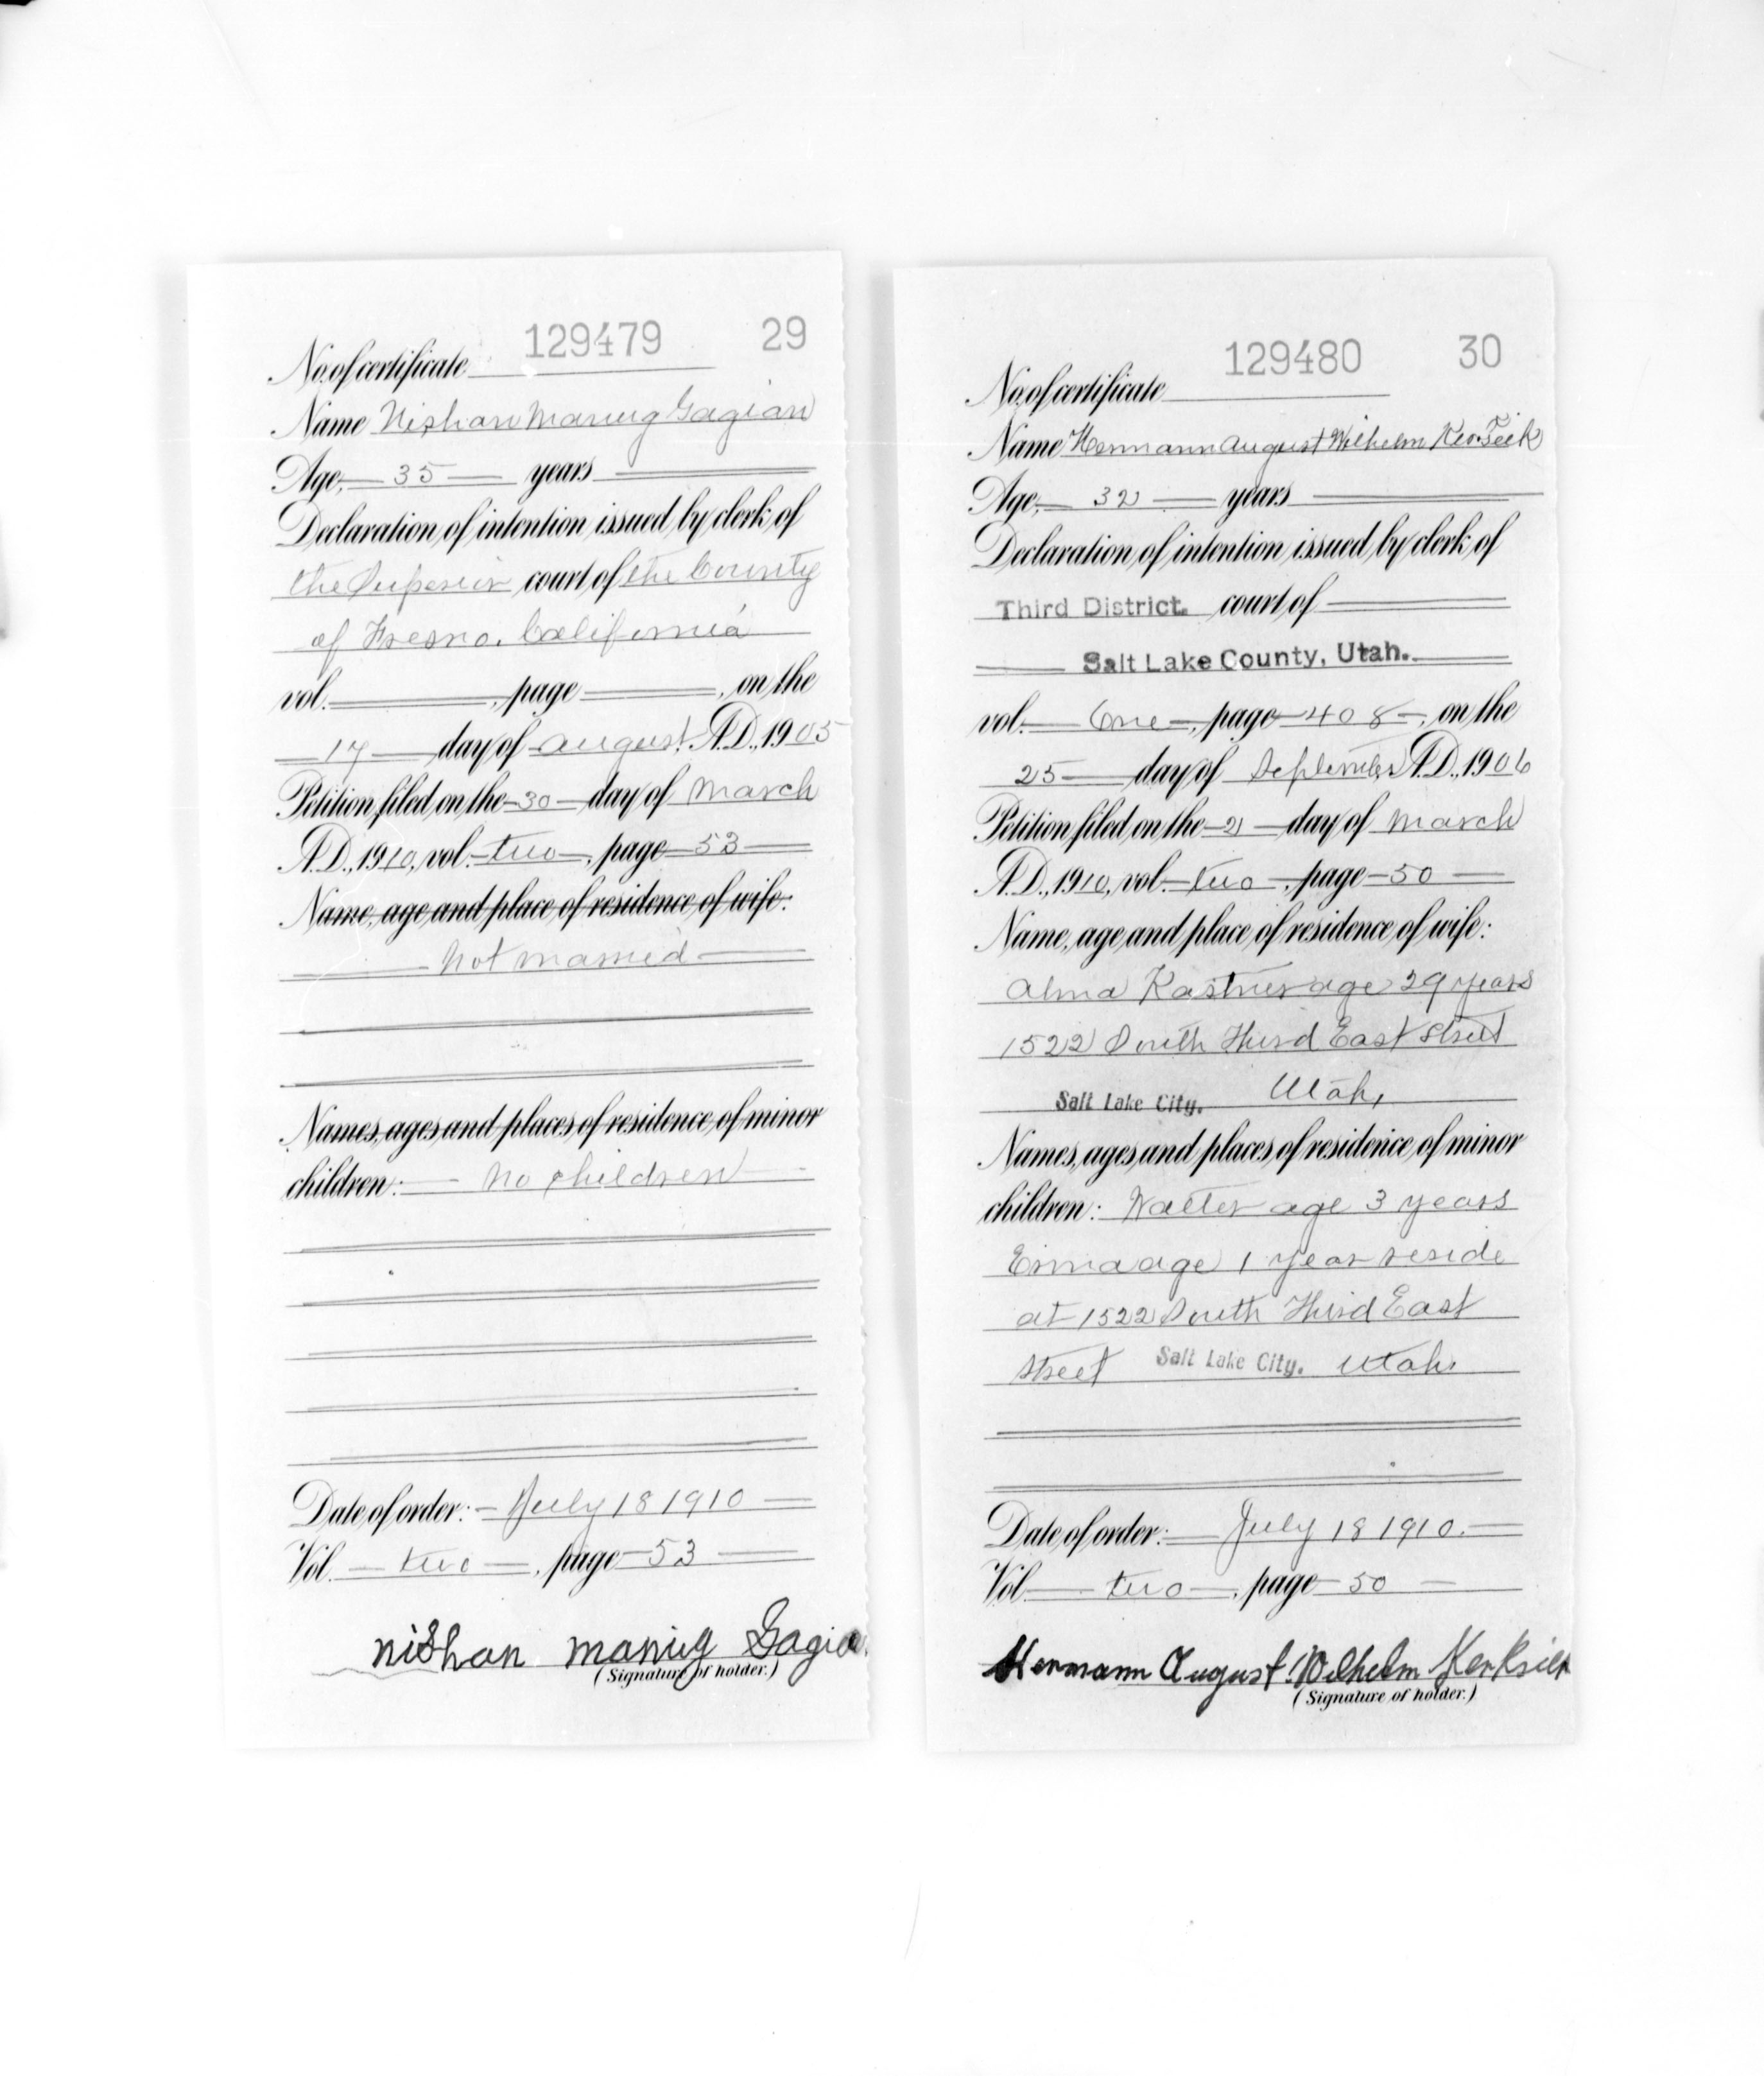 129479 29
No. of certificate
Name Nishan Manug Gagian
Age, 35 years
Declaration of intention issued by clerk of
the Superior court of the County
of Fresno. California
vol. , page , on the
17 day of August A.D., 1905
Petition filed on the 30 day of March
A.D., 1910, vol. two, page 53
Name, age and place of residence of wife:
Not married
Names, ages and places of residence of minor
children: No children
Date of order: July 18 1910
Vol. two, page 53
Nishan Manug Gagia
(Signature of holder.)
129480 30
No. of certificate
Name Hermann August Wilhelm
Age, 32 years
Declaration of intention issued by clerk of
Third District. court of
Salt Lake County, Utah.
vol. One, page 408, on the
25 day of September A.D., 1906
Petition filed on the 2 day of March
A.D., 1910, vol. two, page 50
Name, age and place of residence of wife:
Alma Kastner age 29 years
1522 South Third East Street
Salt Lake City. Utah,
Names, ages and places of residence of minor
children: Walter age 3 years
Erma age 1 year reside
at 1522 South Third East
Street Salt Lake City. Utah.
Date of order: July 18 1910.
Vol. two, page 50
Hermann August Wilhelm
(Signature of holder.)